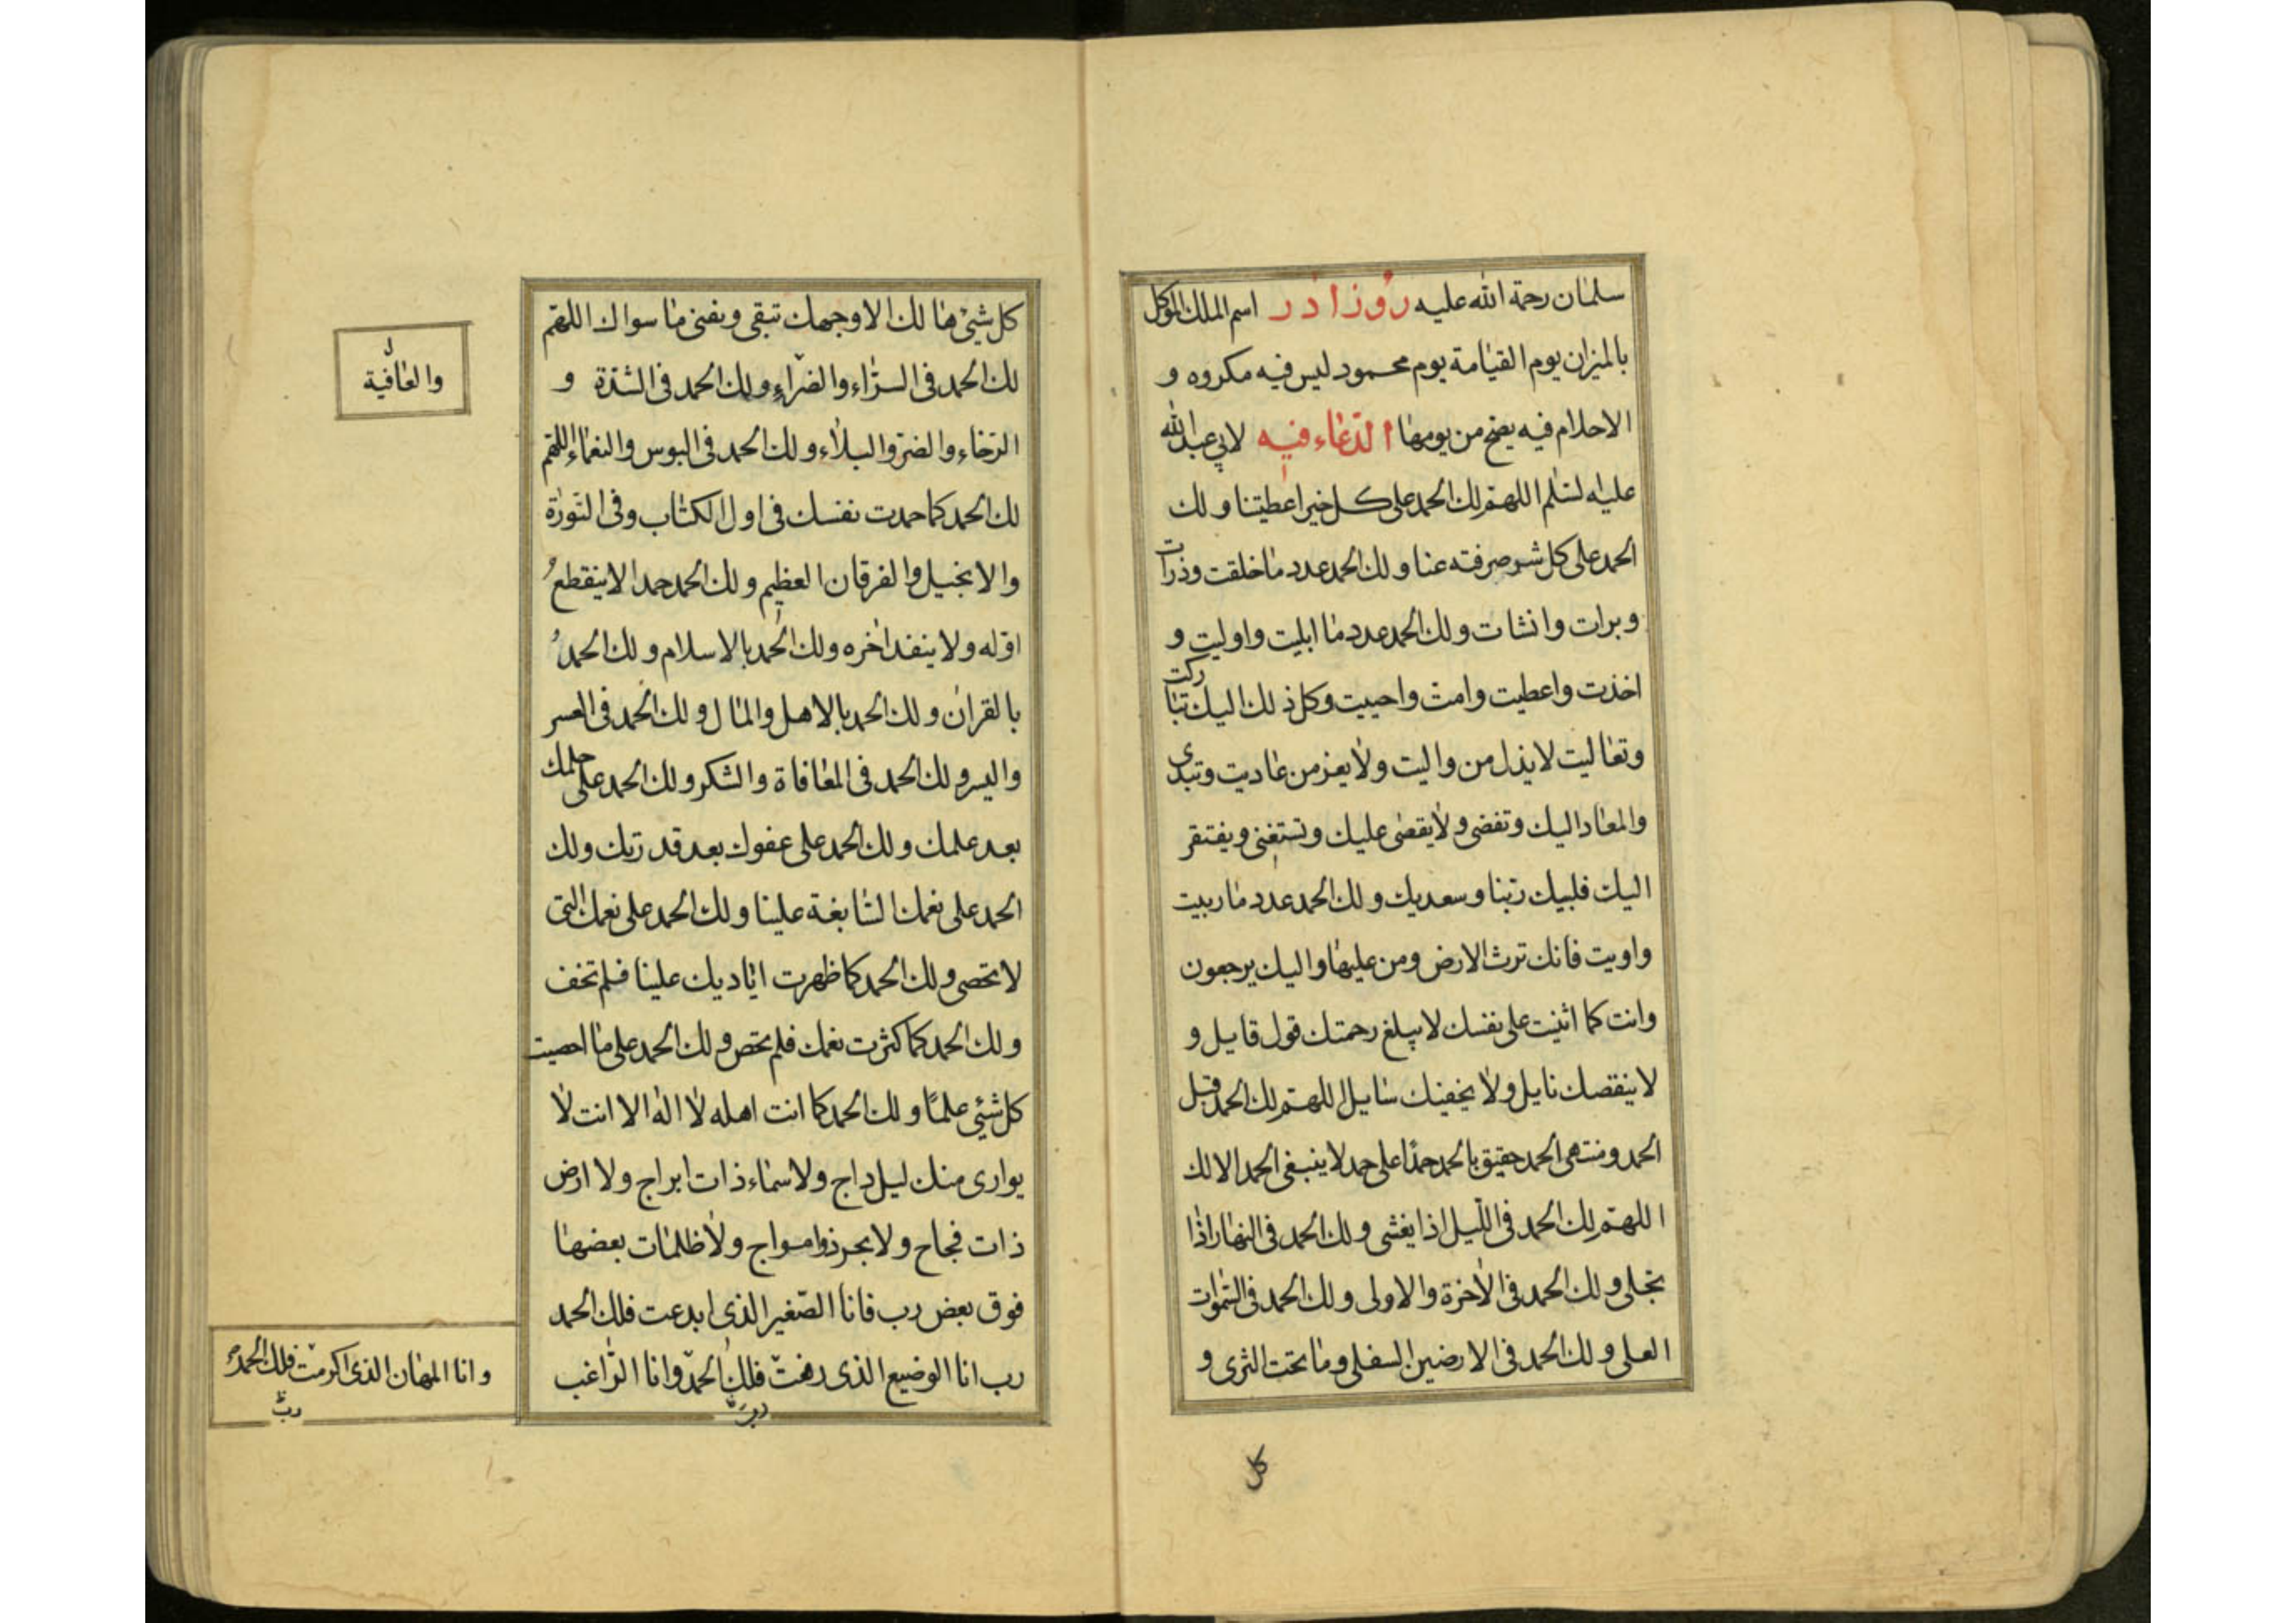 سلمان رحمة الله عليه روز اذر اسم الملك الموكل
بالميزان يوم القيامة يوم محمود ليس فيه مكروه و
الاحلام فيه يصح من يومها الدعاء فيه لابي عبد الله
عليه لسلم اللهم لك الحمد على كل خير اعطيتنا و لك
الحمد على كل شر صرفته عنا و لك الحمد عدد ما خلقت وذرات
وبرات وانشات و لك الحمد عدد ما ابليت واوليت و
اخذت واعطيت وامت واحييت وكل ذلك اليك تباركت
وتعاليت لا يذل من واليت ولا يعز من عاديت وتبدى
والمعاد اليك وتقضى ولا يقضى عليك وتستغنى ويفتقر
اليك فلبيك ربنا وسعديك و لك الحمد عدد ما ربيت
واويت فانك ترث الارض ومن عليها واليك يرجعون
وانت كما اثنيت على نفسك لا يبلغ رحمتك قول قايل و
لا ينقصك نايل ولا يحفيك سايل اللهم لك الحمد قبل
الحمد ومنتهى الحمد حقيق بالحمد حمدا على حمد لا ينبغى الحمد الا لك
اللهم لك الحمد فى الليل اذا يغشى و لك الحمد فى النهار اذا
تجلى و لك الحمد فى الاخرة والاولى و لك الحمد فى السموات
العلى و لك الحمد فى الارضين السفلى وما تحت الثرى و
كل
كل شيئ هالك الا وجهك تبقى ويفنى ما سواك اللهم
لك الحمد فى السراء والضراء و لك الحمد فى الشدة و
الرخاء والضر والبلاء و لك الحمد فى البوس والنعماء اللهم
لك الحمد كما حمدت نفسك فى اول الكتاب وفى التورة
والانجيل والفرقان العظيم و لك الحمد حمدا لا ينقطع
اوله ولا ينفد اخره ولك الحمد بالاسلام و لك الحمد
بالقران و لك الحمد بالاهل والمال و لك الحمد فى العسر
واليسر و لك الحمد فى المعافاة والشكر و لك الحمد على حلمك
بعد علمك و لك الحمد على عفوك بعد قدرتك ولك
الحمد على نعمك السابغة علينا و لك الحمد على نعمك التى
لا تحصى و لك الحمد كما ظهرت اياديك علينا فلم تخف
و لك الحمد كما كثرت نعمك فلم تحص و لك الحمد على ما احصيت
كل شيئ علما و لك الحمد كما انت اهله لا اله الا انت لا
يوارى منك ليل داج ولا سماء ذات ابراج ولا ارض
ذات فجاج ولا بحر ذو امواج ولا ظلمات بعضها
فوق بعض رب فانا الصغير الذى ابدعت فلك الحمد
رب انا الوضيع الذى رفعت فلك الحمد وانا الراغب
والعافية
وانا المهان الذى اكرمت فلك الحمد
رب